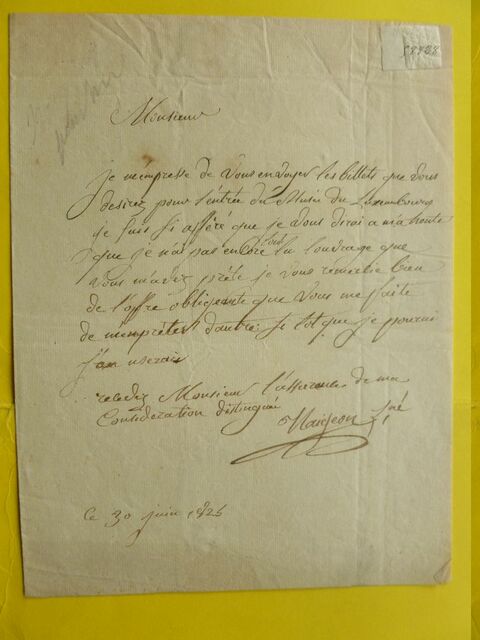 58738
Monsieur
je m'empresse de vous envoyer les billets que vous
desirez pour l'entrée du Musée du Luxembourg
je suis si afféré que je vous dirai a ma honte
que je n'ai pas encore tout lu l'ouvrage que
vous m'avez prété je vous remercie bien
de l'offre obligeante que vous me faite
de m'empréter d'autre. Si tot que je pourai
j'an userais
recevez Monsieur l'assurance de ma
Consideration distinguée
Naigeon
le 30 juin 1825